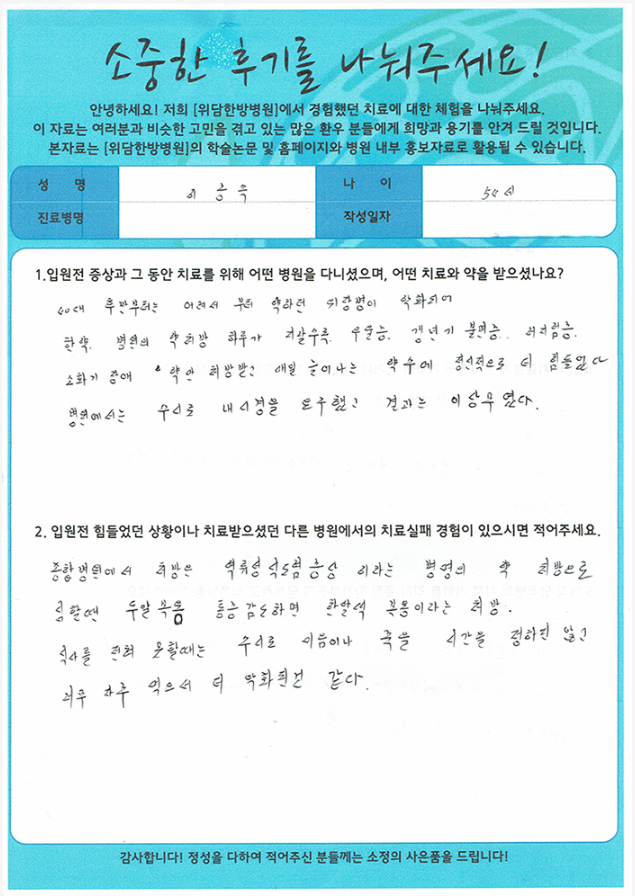 소중한 후기를 나눠주세요!
안녕하세요! 저희 [위담한방병원]에서 경험했던 치료에 대한 체험을 나눠주세요.
이 자료는 여러분과 비슷한 고민을 겪고 있는 많은 환우 분들에게 희망과 용기를 안겨 드릴 것입니다.
본자료는 [위담한방병원]의 학술논문 및 홈페이지와 병원 내부 홍보자료로 활용될 수 있습니다.
성 명 이 나 이 54세
진료병명 작성일자
1.입원전 증상과 그 동안 치료를 위해 어떤 병원을 다니셨으며, 어떤 치료와 약을 받으셨나요?
40대 후반부터는 어려서 부터 약하던 위장병이 악화되어
한약. 병원의 약처방 하루가 우울증. 갱년기 불면증.
소화기 장애 약만 처방받고 매일 늘어나는 약 수에 정신적으로 더 힘들었다
병원에서는 수시로 내시경을 요구했고 결과는 이상무 였다.
2. 입원전 힘들었던 상황이나 치료받으셨던 다른 병원에서의 치료실패 경험이 있으시면 적어주세요.
종합병원에서 처방은 역류성식도염증상 이라는 병명의 약 처방으로
심할때 두알복용 통증감소하면 한알씩 복용이라는 처방.
식사를 전혀 못할때는 수시로 미음이나 죽을 시간을 정하진 않고
하루 먹으서 더 악화된건 같다.
감사합니다! 정성을 다하여 적어주신 분들께는 소정의 사은품을 드립니다!